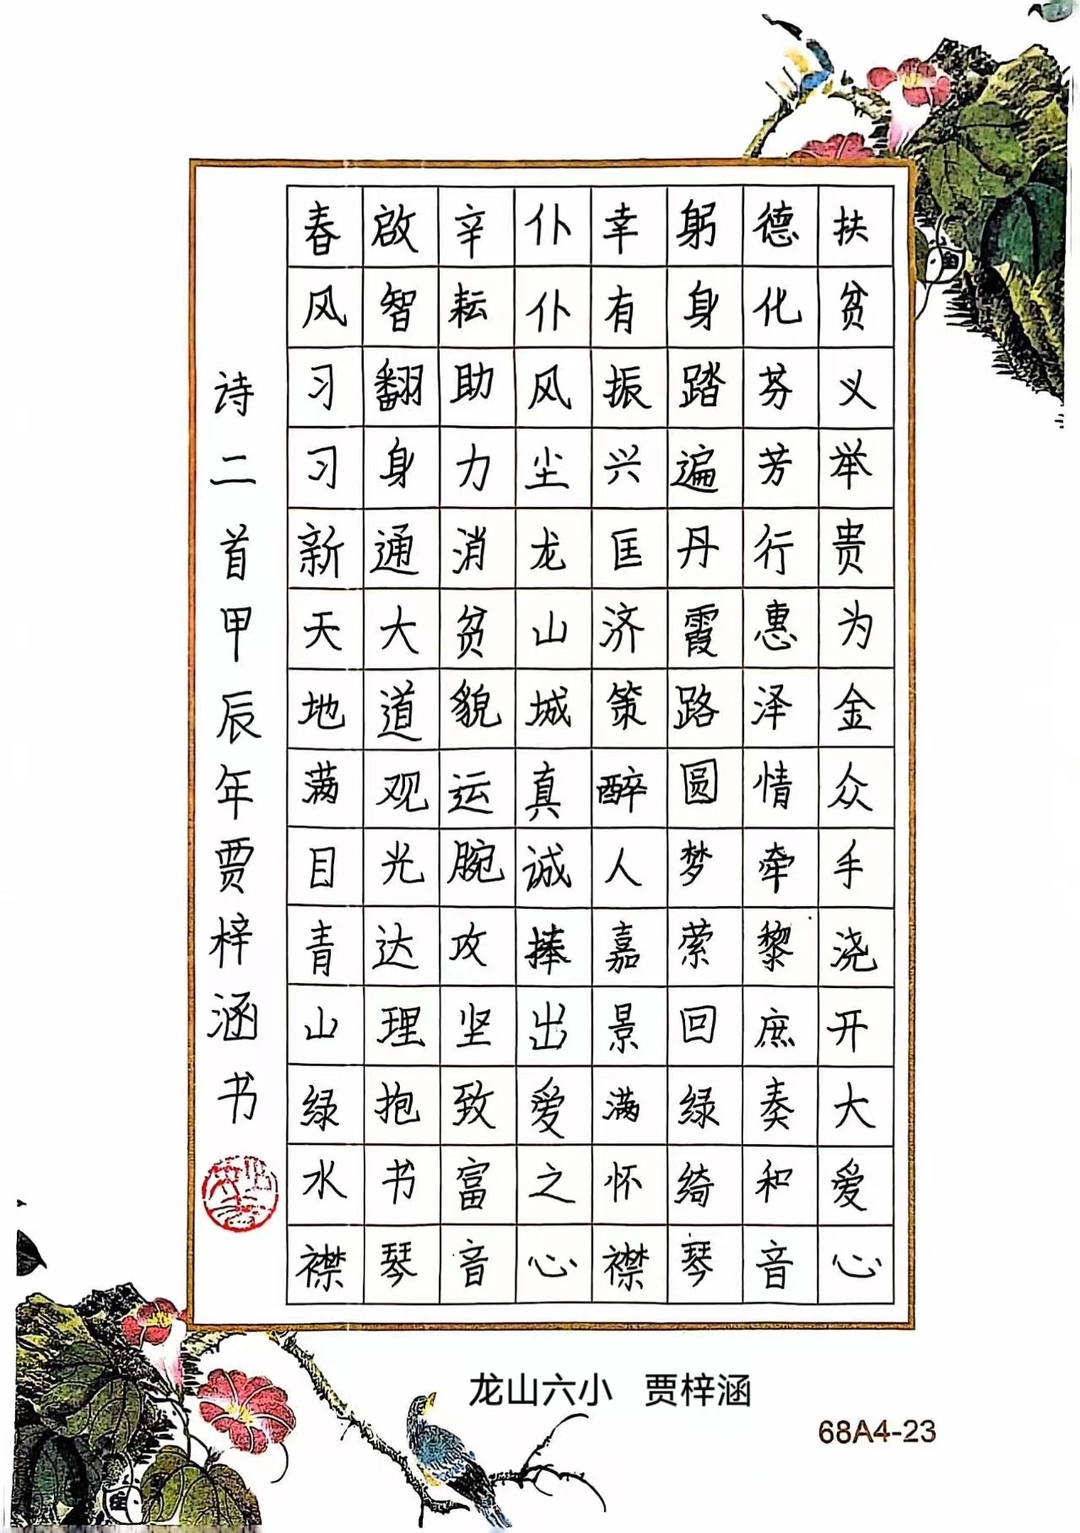 扶贫义举贵为金众手浇开大爱心
德化芬芳行惠泽情牵黎庶奏和音
躬身踏遍丹霞路圆梦萦回绿绮琴
幸有振兴匡济策醉人嘉景满怀襟
仆仆风尘龙山城真诚捧出爱之心
辛耘助力消贫貌运腕攻坚致富音
啟智翻身通大道观光达理抱书琴
春风习习新天地满目青山绿水襟
诗二首甲辰年贾梓涵书
龙山六小 贾梓涵
68A4-23